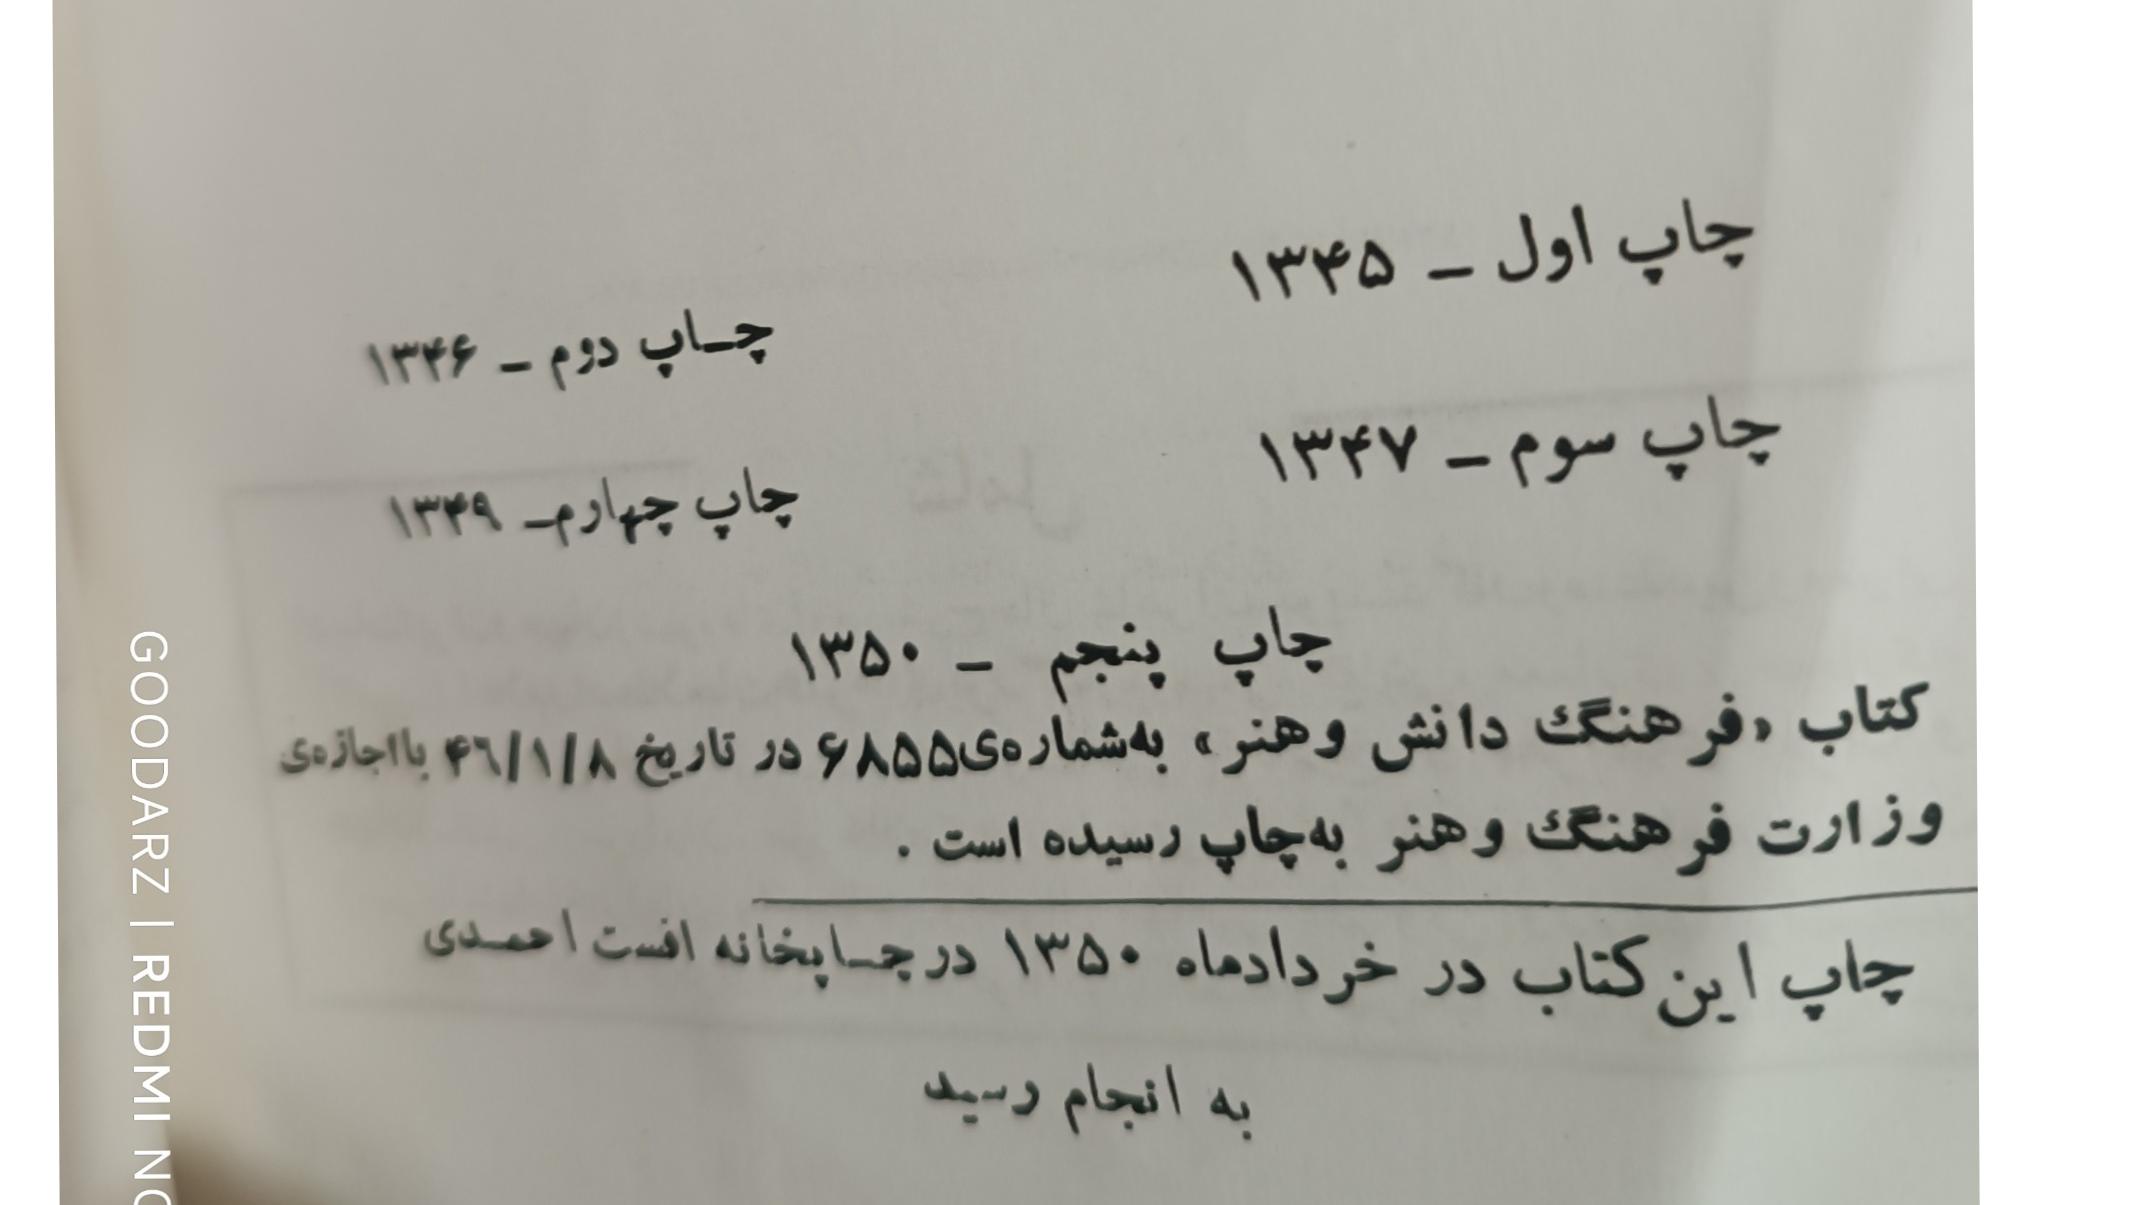 چاپ اول ــ ۱۳۴۵
چـاپ دوم ــ ۱۳۴۶
چاپ سوم ــ ۱۳۴۷
چاپ چهارم ــ ۱۳۴۹
چاپ پنجم ــ ۱۳۵۰
کتاب «فرهنگ دانش وهنر» به‌شماره‌ی۶۸۵۵ در تاریخ ۴٦/۱/۸ با‌اجازه‌ی
وزارت فرهنگ وهنر به‌چاپ رسیده است .
چاپ این کتاب در خردادماه ۱۳۵۰ در چـاپخانه افست احمـدی
به انجام رسید
GOODARZ | REDMI NO